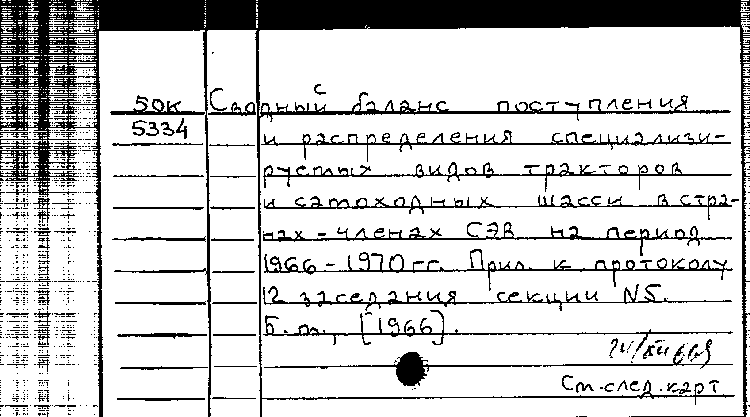 с
50К Сводный баланс поступления
5334 и распределения специализи-
руемых видов тракторов
и самоходных шасси в стра-
нах-членах СЭВ на период
1966-1970 гг. Прил. к протоколу
12 заседания секции N5.
Б.м., [1966].
См. след. карт